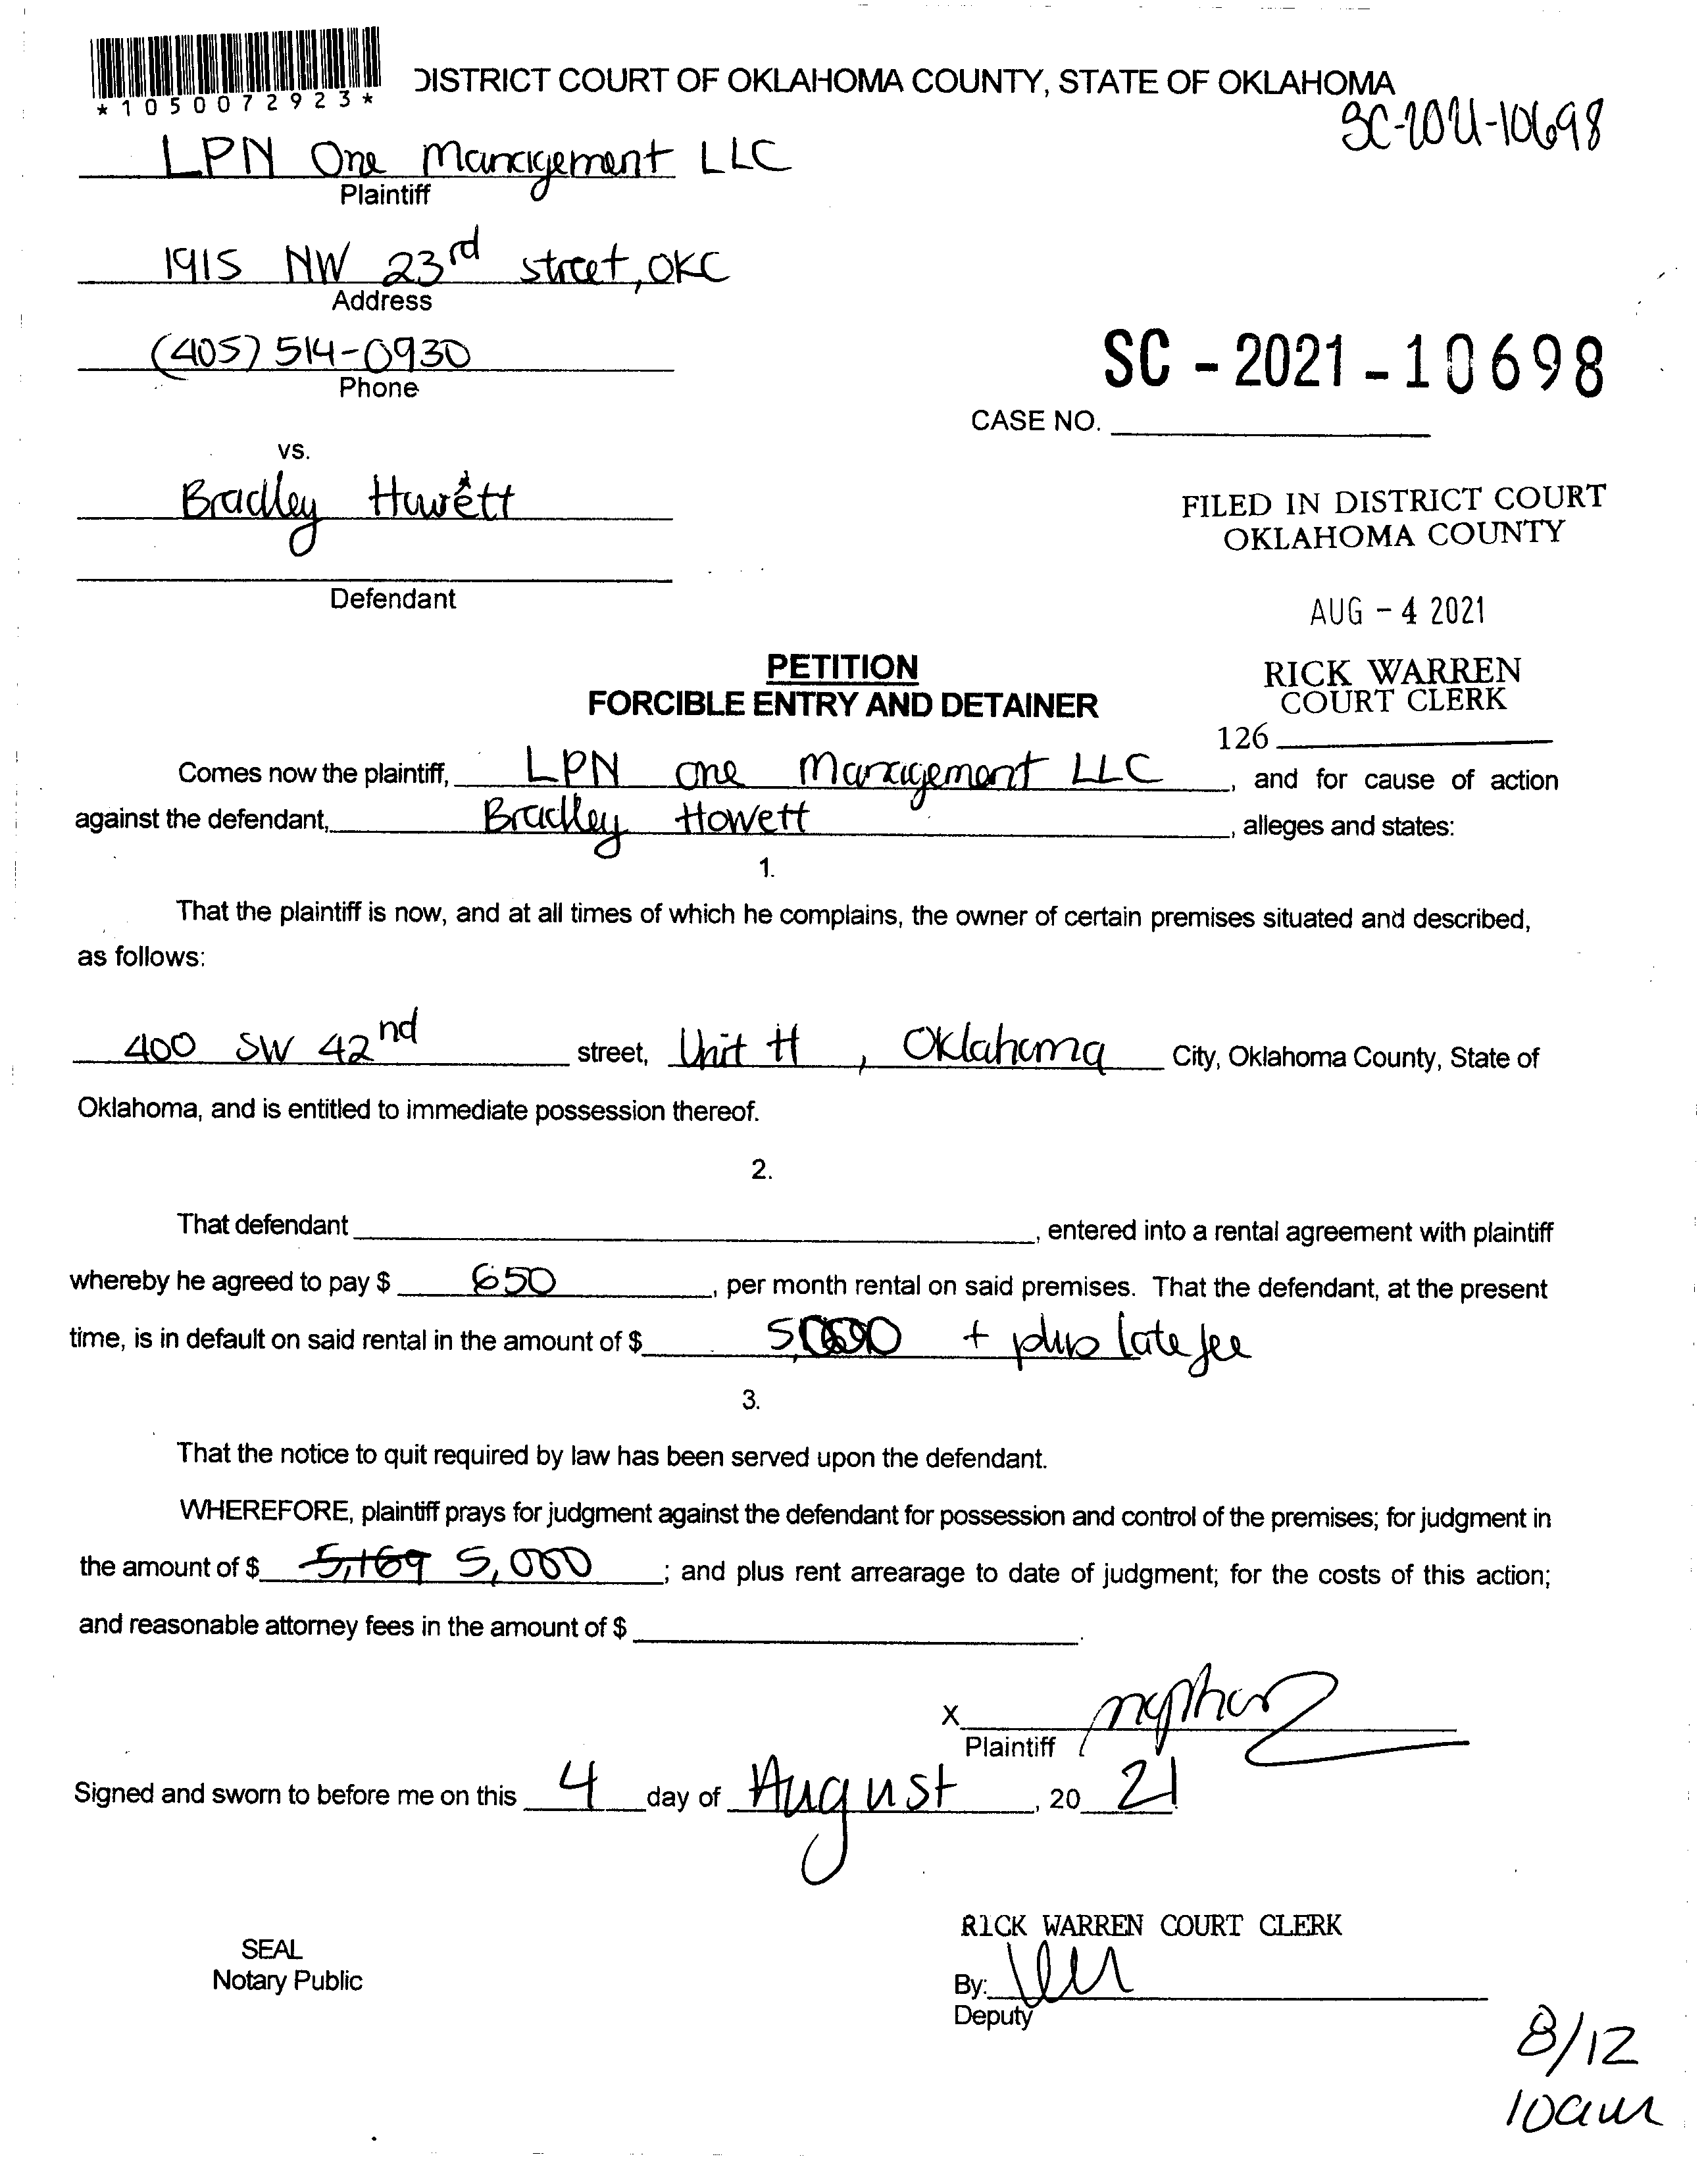 *1050072923*
DISTRICT COURT OF OKLAHOMA COUNTY, STATE OF OKLAHOMA
SC-2021-10698
LPN One Management LLC
Plaintiff
1915 NW 23rd street, OKC
Address
(405) 514-0930
Phone
SC - 2021 - 10698
CASE NO.
vs.
Bradley Howett
Defendant
FILED IN DISTRICT COURT
OKLAHOMA COUNTY
AUG - 4 2021
RICK WARREN
COURT CLERK
126
PETITION
FORCIBLE ENTRY AND DETAINER
Comes now the plaintiff, LPN one Management LLC, and for cause of action
against the defendant, Bradley Howett, alleges and states:
1.
That the plaintiff is now, and at all times of which he complains, the owner of certain premises situated and described,
as follows:
400 SW 42nd street, Unit H, Oklahoma City, Oklahoma County, State of
Oklahoma, and is entitled to immediate possession thereof.
2.
That defendant, entered into a rental agreement with plaintiff
whereby he agreed to pay $ 650, per month rental on said premises. That the defendant, at the present
time, is in default on said rental in the amount of $ + plus late fee
3.
That the notice to quit required by law has been served upon the defendant.
WHEREFORE, plaintiff prays for judgment against the defendant for possession and control of the premises; for judgment in
the amount of $ 5,169 5,000; and plus rent arrearage to date of judgment; for the costs of this action;
and reasonable attorney fees in the amount of $.
X
Plaintiff
Signed and sworn to before me on this 4 day of August, 20 21
RICK WARREN COURT CLERK
SEAL
Notary Public
By:
Deputy
8/12
10am